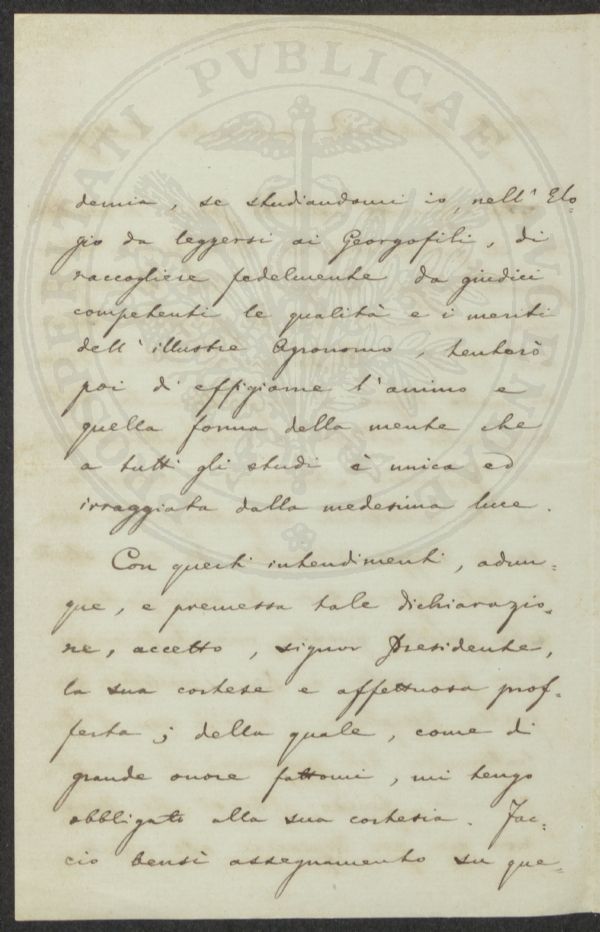 PROSPERITATI PVBLICAE AVGENDAE
demia, se studiandomi io, nell' Elo-
gio da leggersi ai Georgofili, di
raccogliere fedelmente da giudici
competenti le qualità e i meriti
dell' illustre Agronomo, tenterò
poi d' effigiarne l'animo e
quella forma della mente che
a tutti gli studi è unica ed
irraggiata dalla medesima luce.
Con questi intendimenti, adun-
que, e premessa tale dichiarazio-
ne, accetto, signor Presidente,
la sua cortese e affettuosa prof-
ferta; della quale, come di
grande onore fattomi, mi tengo
obbligato alla sua cortesia. Fac-
cio bensì assegnamento su que-